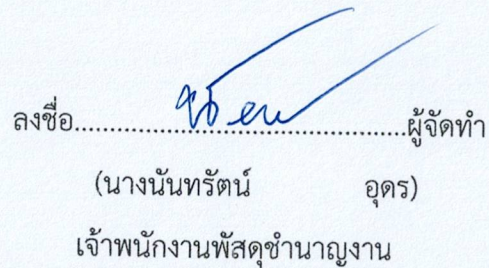 ลงชื่อ............................................ผู้จัดทำ
(นางนันทรัตน์ อุดร)
เจ้าพนักงานพัสดุชำนาญงาน